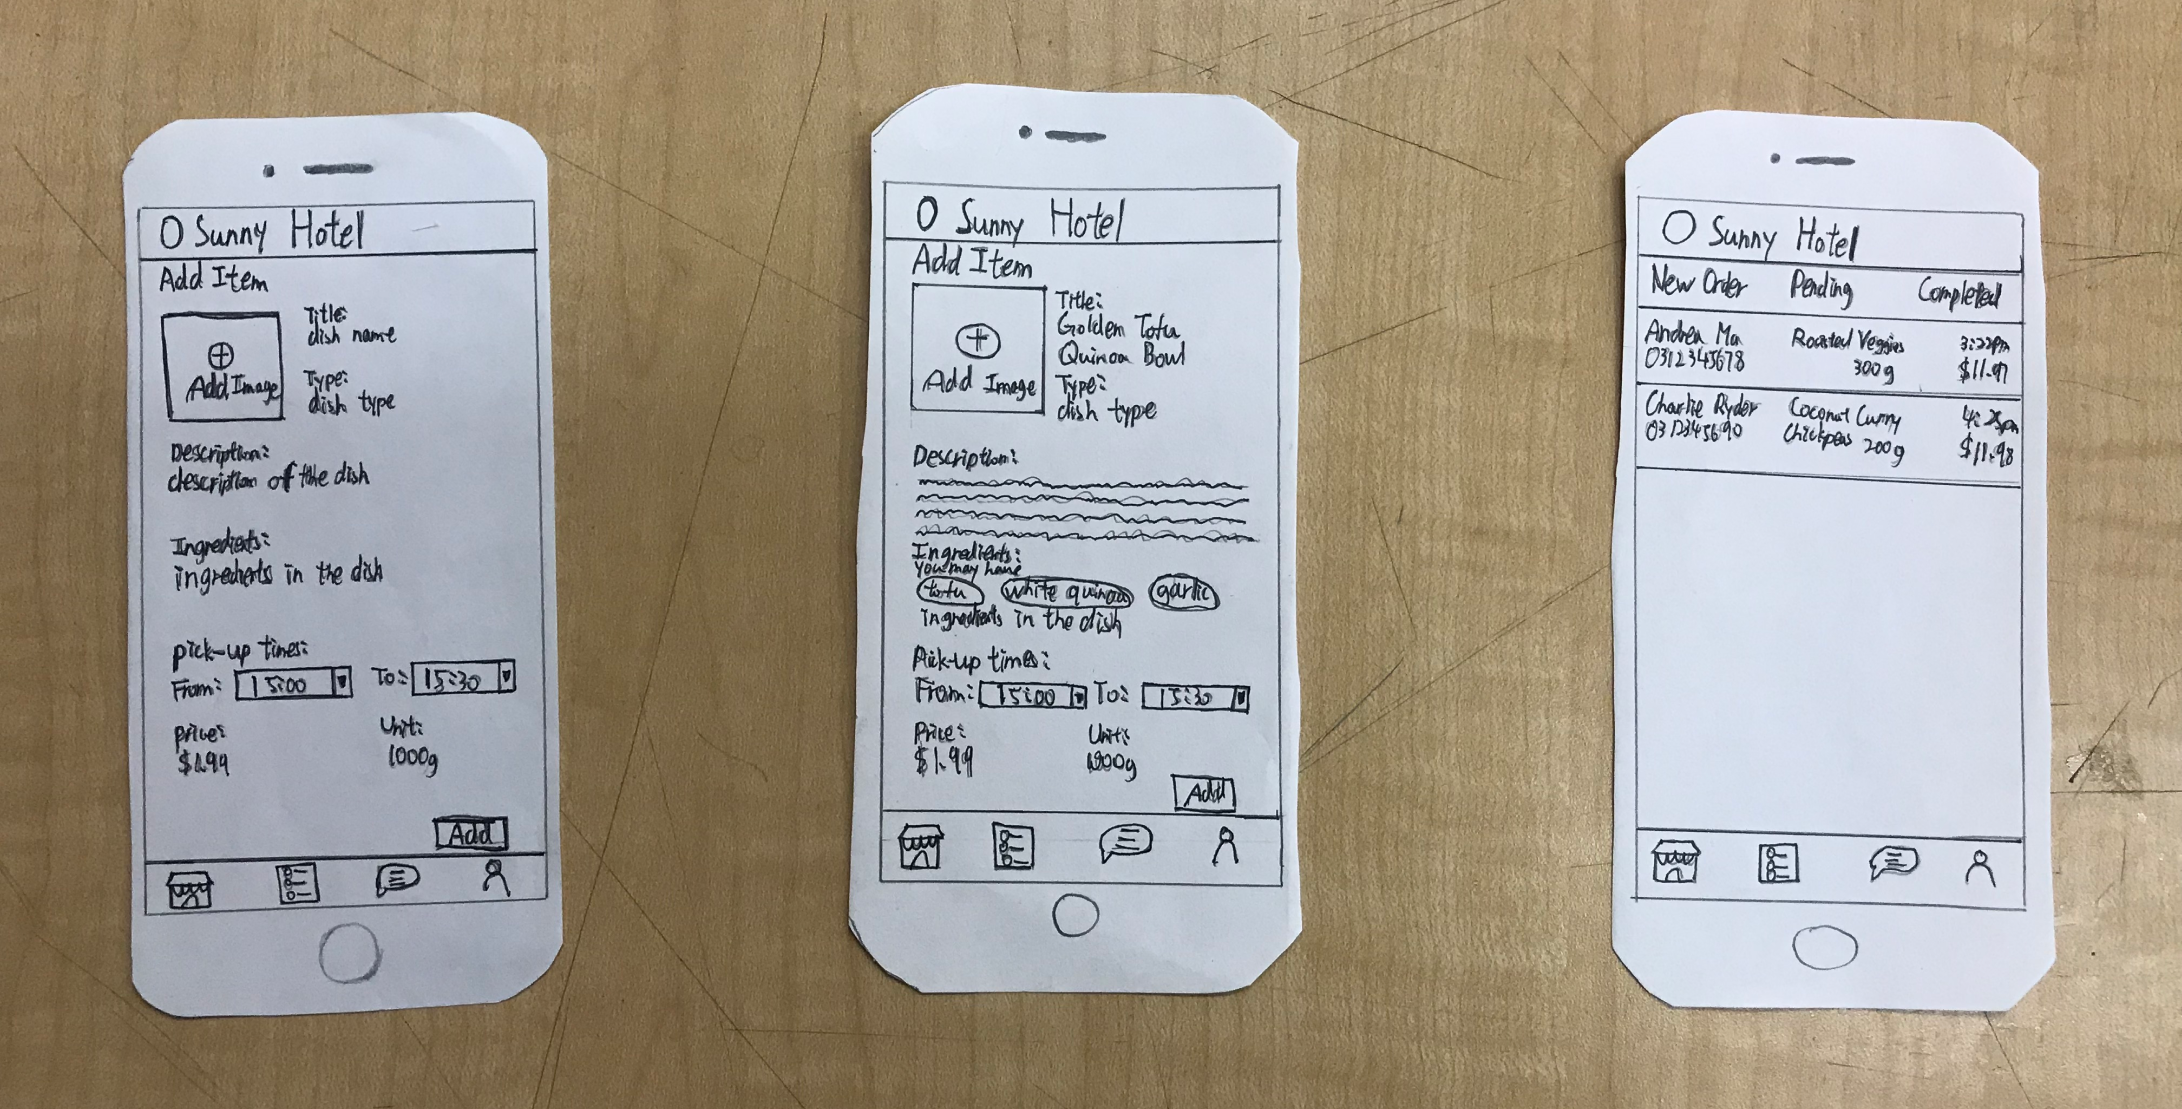 O Sunny Hotel
Add Item
Add Image
Title:
dish name
Type:
dish type
Description:
description of the dish
Ingredients:
ingredients in the dish
pick-up times:
From: 15:00 To: 15:30
price: Unit:
$1.99 1000g
Add
O Sunny Hotel
Add Item
Add Image
Title:
Golden Tofu
Quinoa Bowl
Type:
dish type
Description:
Ingredients:
You may have
tofu white quinoa garlic
ingredients in the dish
Pick-up times:
From: 15:00 To: 15:30
Price: Unit:
$1.99
Add
O Sunny Hotel
New Order Pending Completed
Andrea Ma Roasted Veggies 3:22pm
0312345678 300g $11.97
Charlie Ryder Coconut Curry 4:25pm
0312345690 Chickpeas 200g $11.98